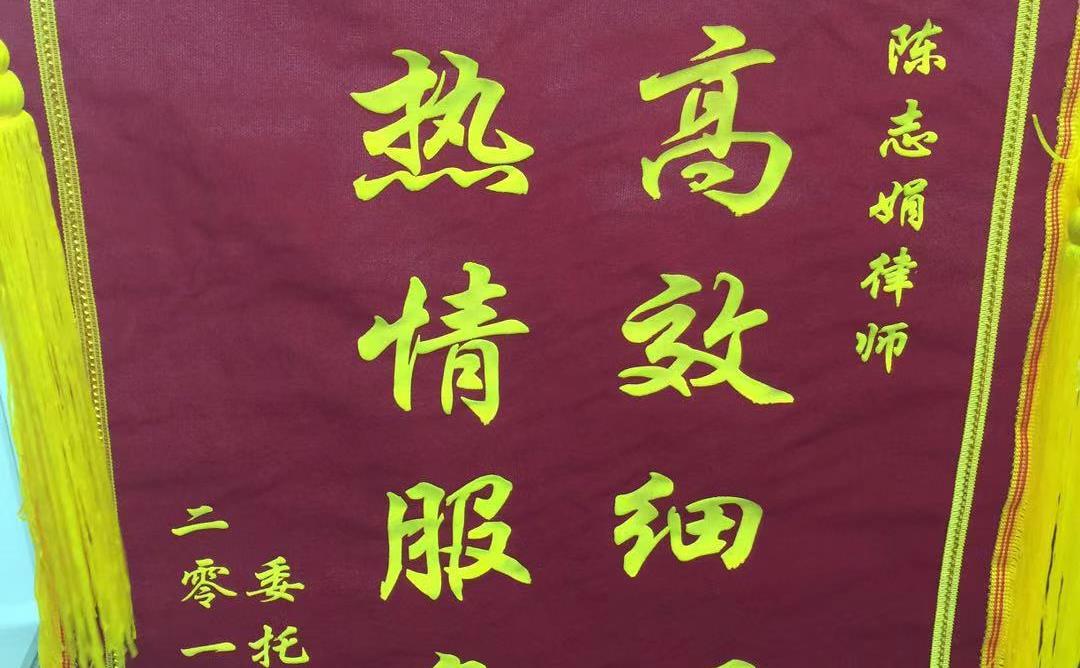 陈志娟律师
高效细
热情服
委托
二零一